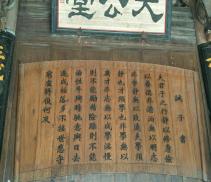 大公堂
誡子書
夫君子之行靜以修身儉
以養德非澹泊無以明志
非寧靜無以致遠夫學須
靜也才須學也非學無以
廣才非志無以成學淫慢
則不能勵精險躁則不能
治性年與時馳意與日去
遂成枯落多不接世悲守
窮廬將復何及